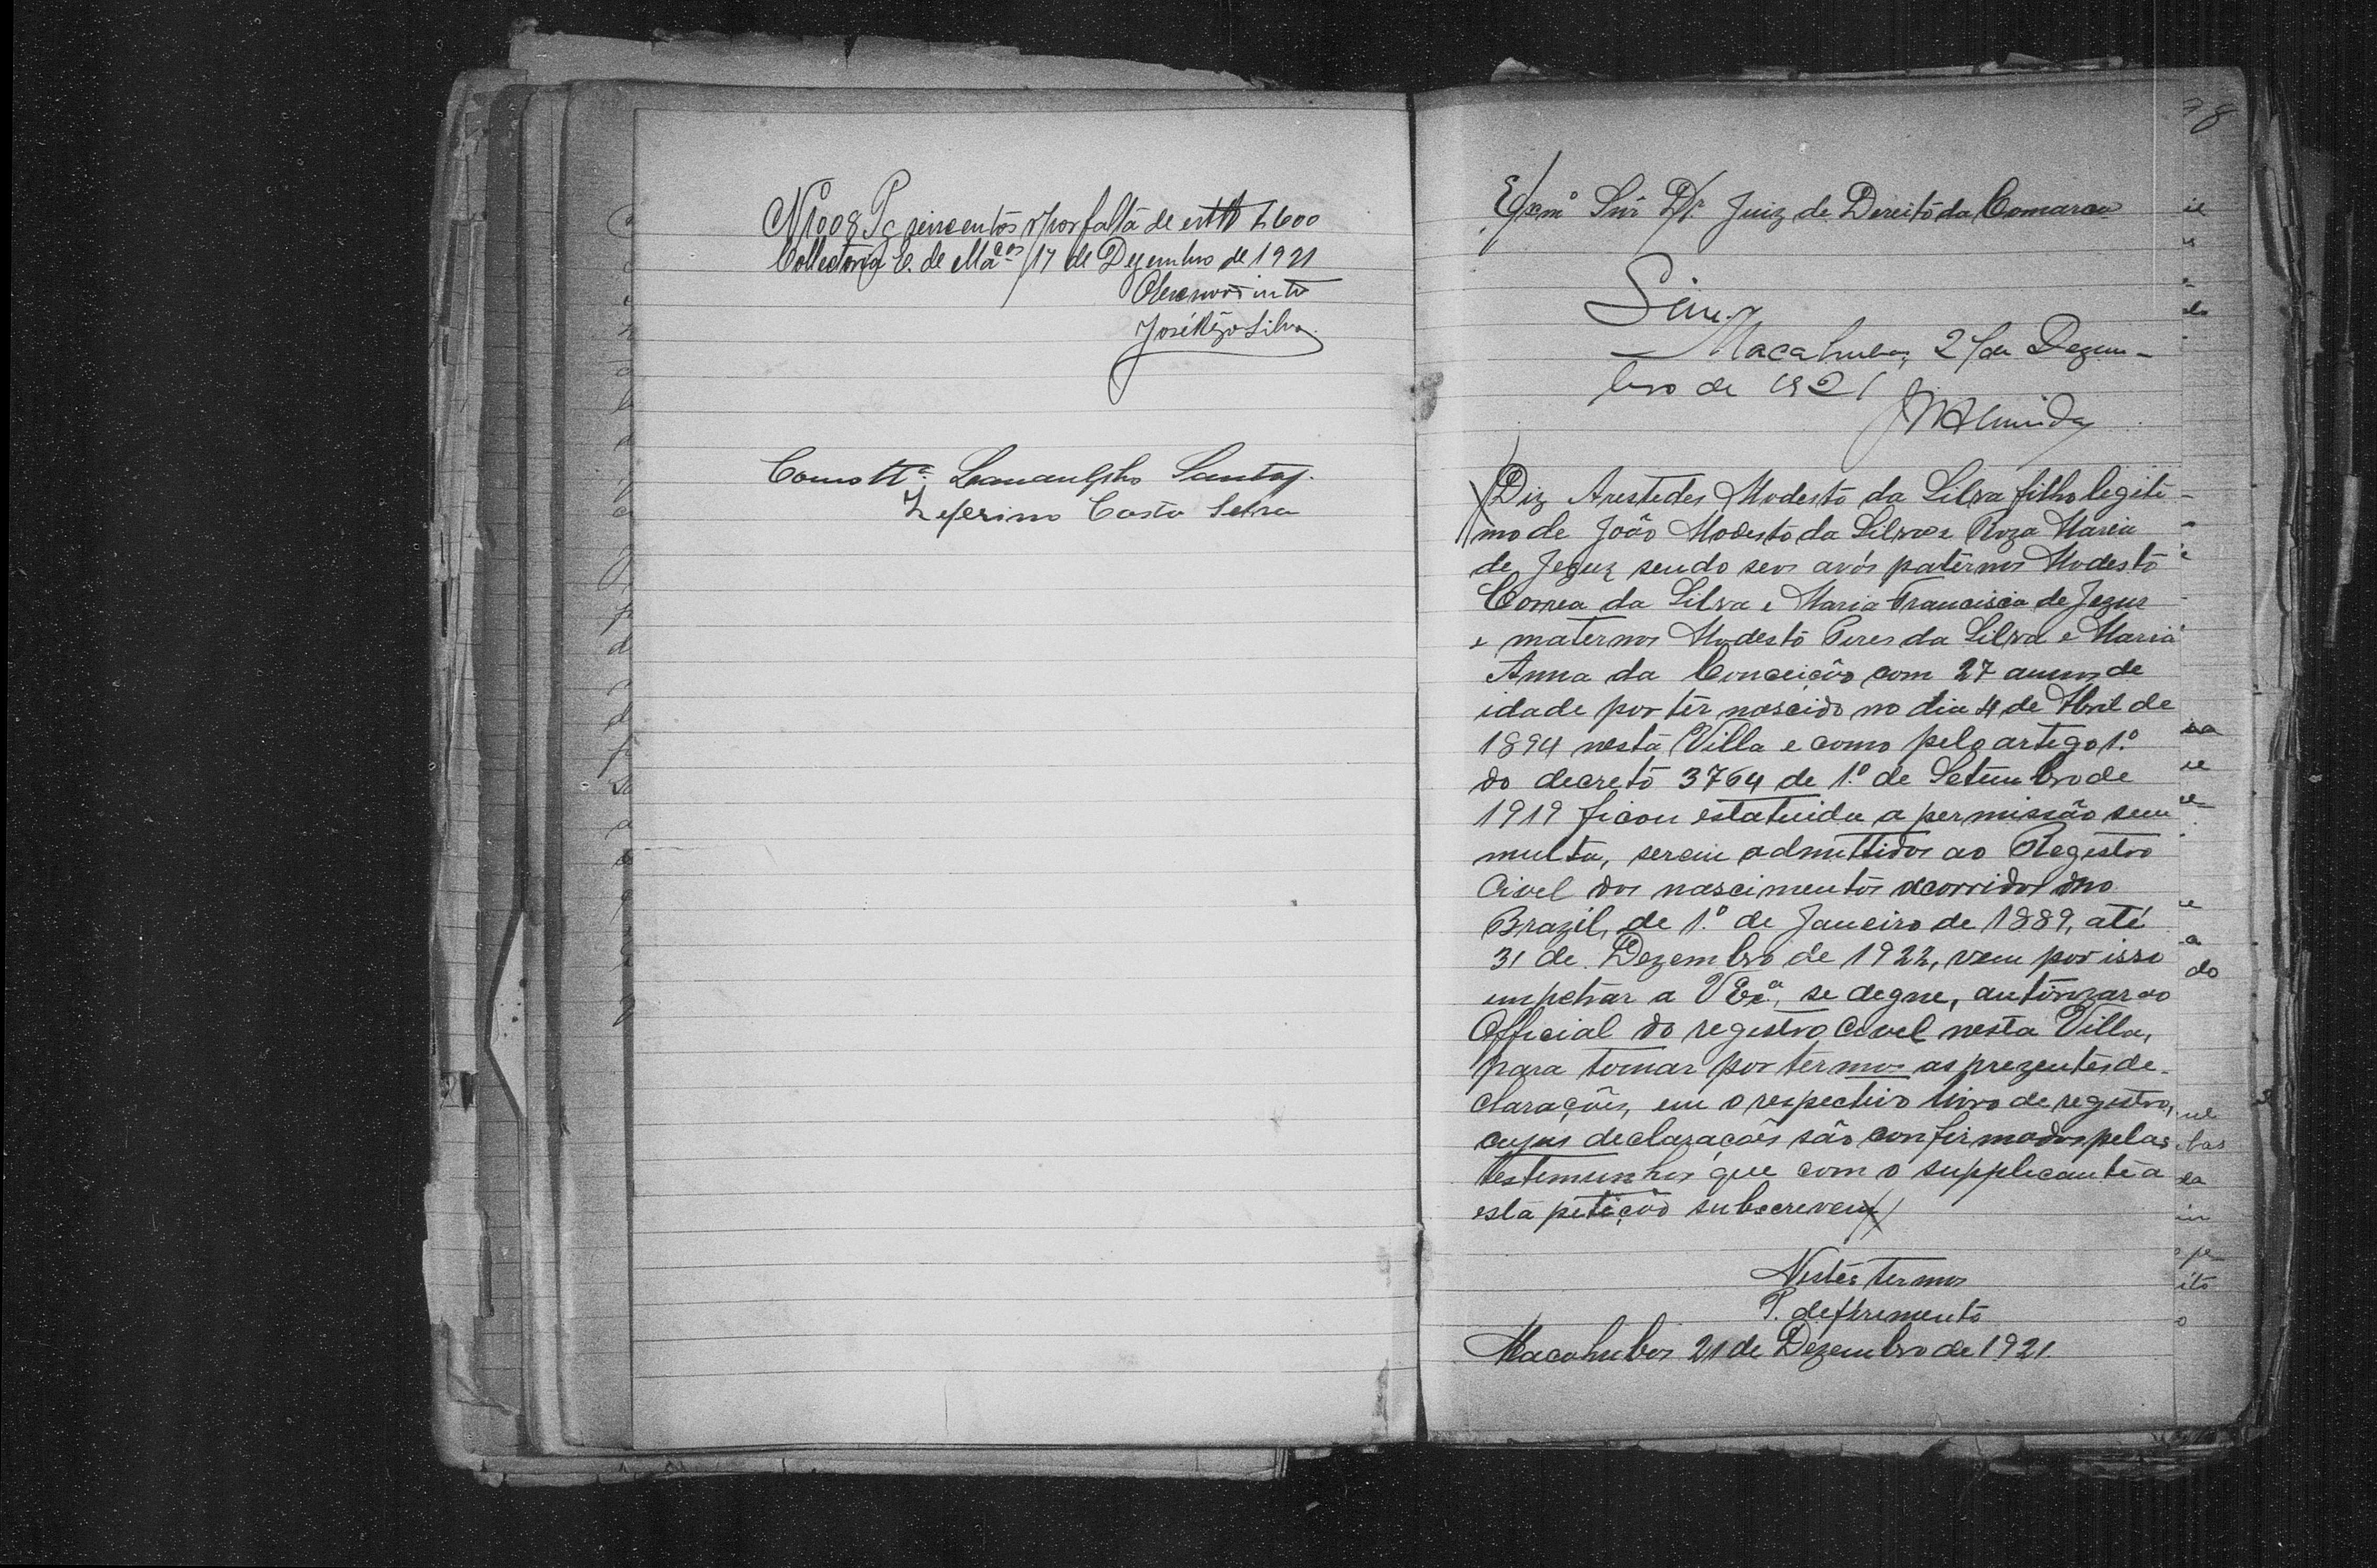 Nº 1008 Pg seiscentos rs por falta de estto $600
Collectoria E. de Macos 17 de Dezembro de 1921
José Rêgo Silva
Como tta Santos.
Zeferino Costa
78
Exmo Snr Dr. Juiz de Direito da Comarca
Sim.
Macahubas, 21 de Dezem-
bro de 1921
MAlmeida
Diz Arestedes Modesto da Silva filho legiti-
mo de João Modesto da Silva e Roza Maria
de Jezuz sendo seos avós paternos Modesto
Correa da Silva e Maria Francisca de Jezus
e maternos Modesto Peres da Silva e Maria
Anna da Conceição com 27 annos de
idade por ter nascido no dia 4 de Abril de
1894 nesta Villa e como pelo artego 1.º
do decreto 3764 de 1.º de Setembro de
1919 ficou estatuida a permissão sem
multa, serem admettidos ao Registro
Civel dos nascimentos occorridos no
Brazil, de 1.º de Janeiro de 1889, até
31 de Dezembro de 1922, vem por isso
impetrar a VExª, se degne, autorizar ao
Official do registro Civel nesta Villa,
para tomar por termos as prezentes de-
clarações, em o respectivo livro de registro,
cujas declarações são confirmados pelas
testemunhas que com o supplecante a
esta petição subscrevem
Nestes termos
P. deferimento
Macahubas 21 de Dezembro de 1921.